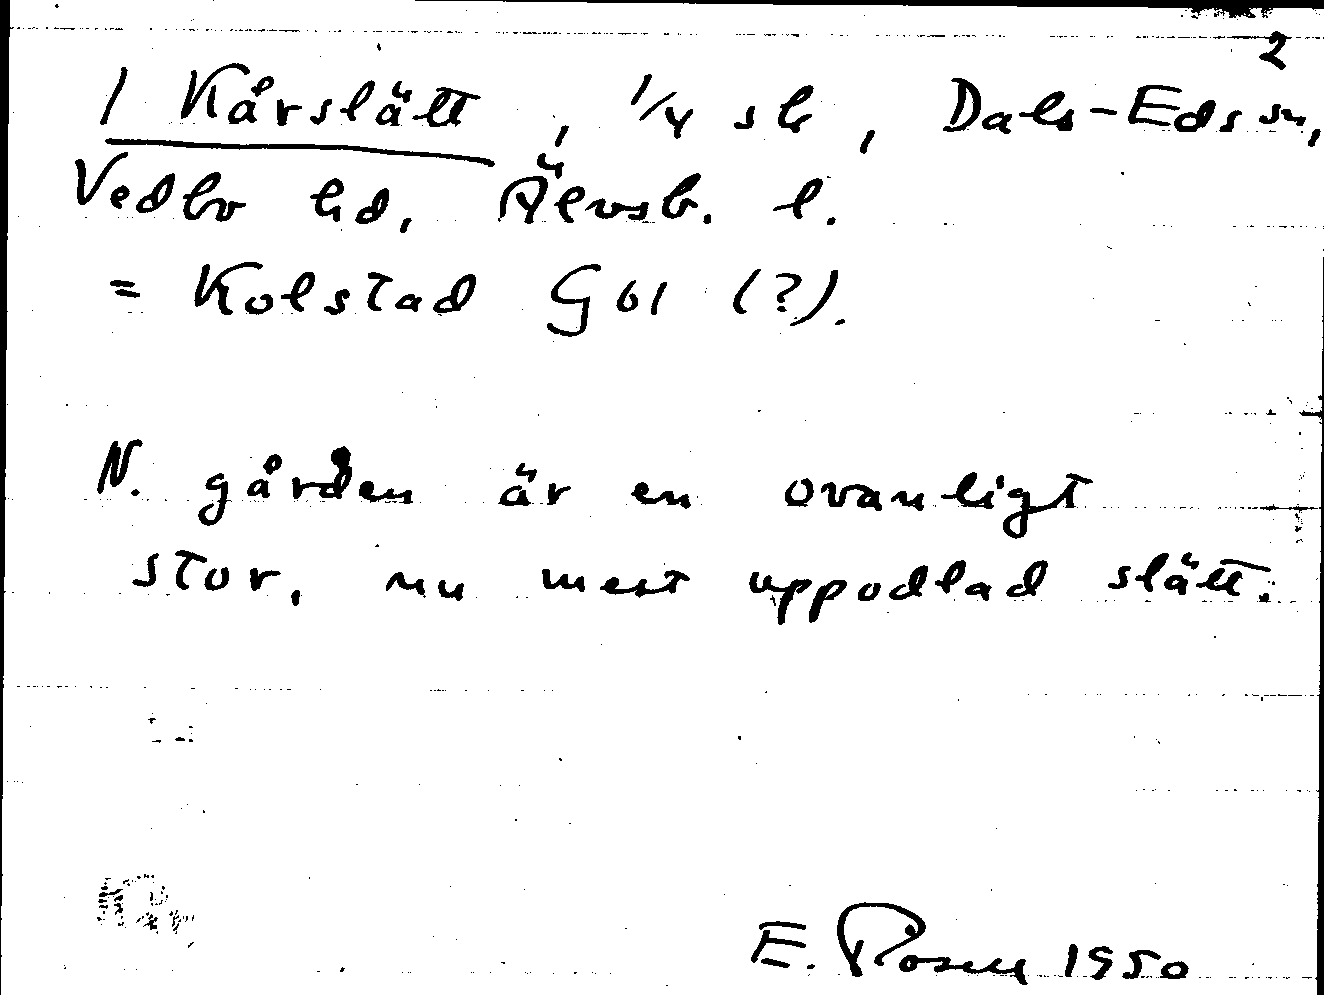 2
1 Kårslätt, 1/4 sk, Dals-Eds sn,
Vedbo hd, Älvsb. l.
= Kolstad G 61 (?).
N. gården är en ovanligt
stor, nu mest uppodlad slätt.
E. Rosell 1950